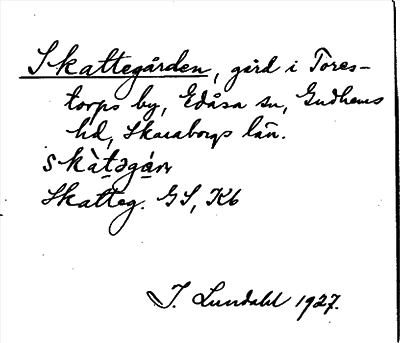 Skattegården, gård i Tores-
torps by, Edåsa sn, Gudhems
hd, Skaraborgs län.
skàtəgán
Skatteg. GS, Kb
I. Lundahl 1927.